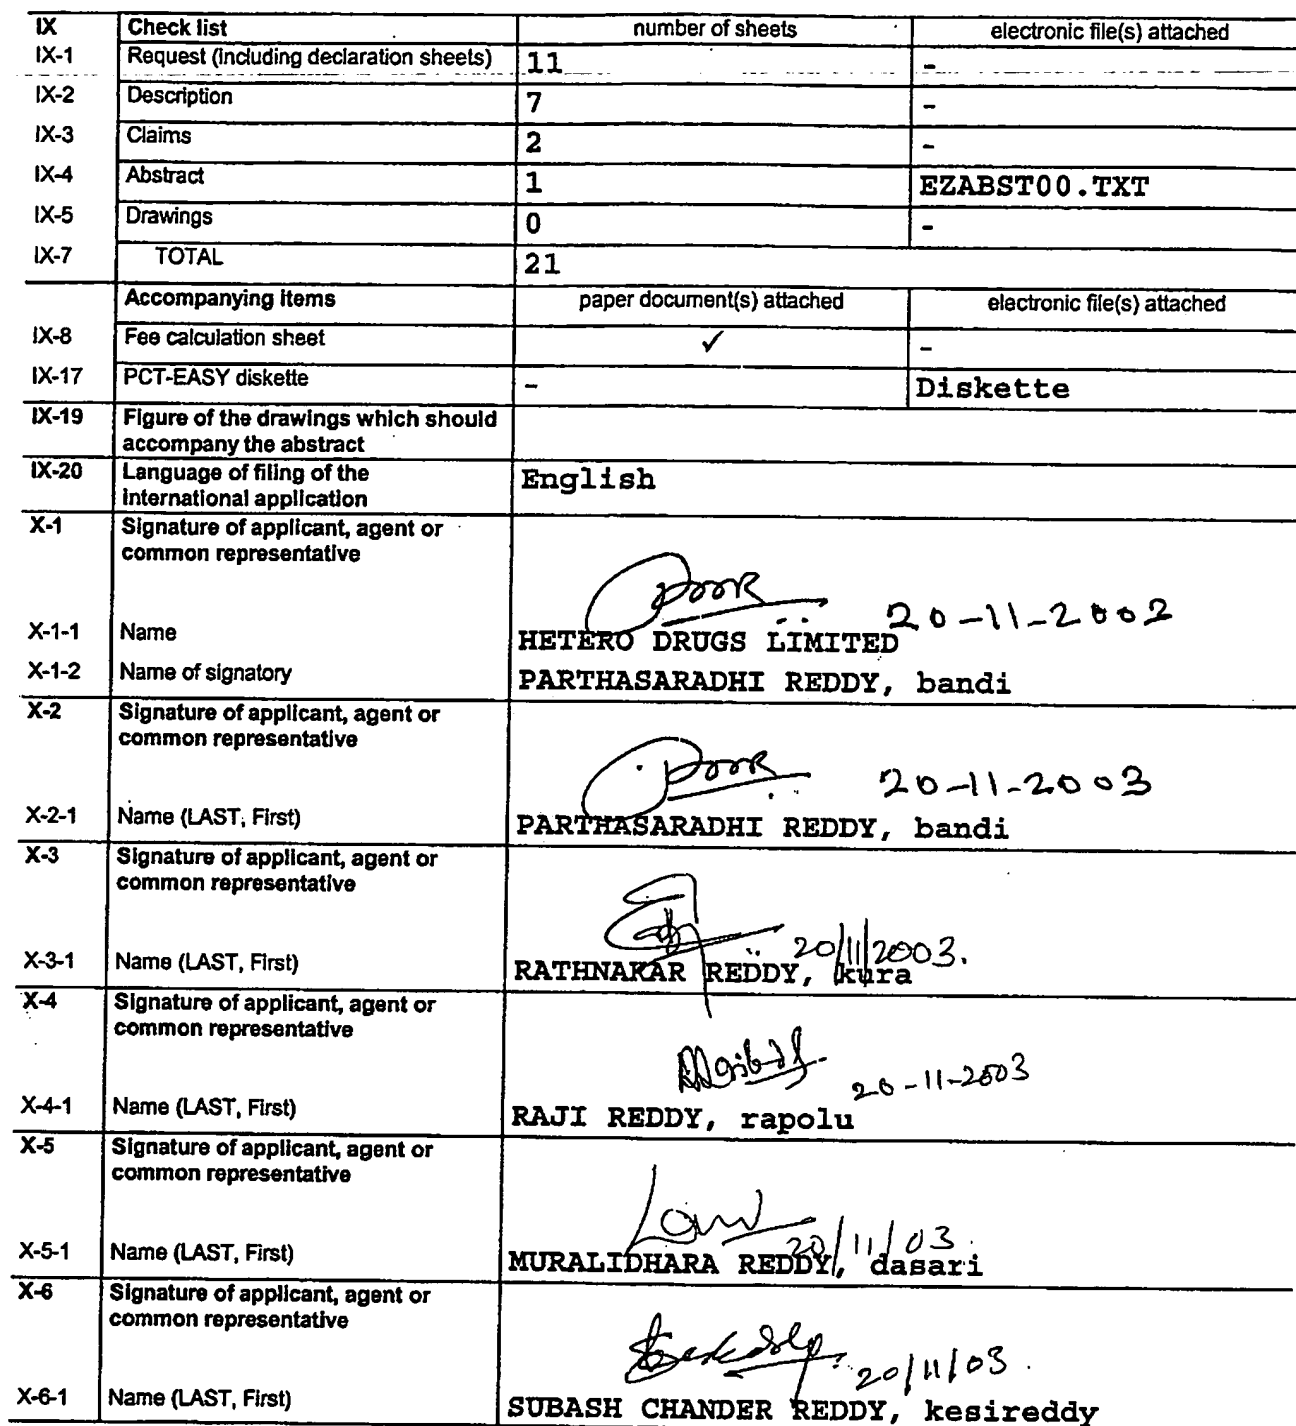 IX Check list number of sheets electronic file(s) attached
IX-1 Request (including declaration sheets) 11 -
IX-2 Description 7 -
IX-3 Claims 2 -
IX-4 Abstract 1 EZABST00.TXT
IX-5 Drawings 0 -
IX-7 TOTAL 21
Accompanying items paper document(s) attached electronic file(s) attached
IX-8 Fee calculation sheet ✓ -
IX-17 PCT-EASY diskette - Diskette
IX-19 Figure of the drawings which should
accompany the abstract
IX-20 Language of filing of the English
international application
X-1 Signature of applicant, agent or
common representative
20-11-2002
X-1-1 Name HETERO DRUGS LIMITED
X-1-2 Name of signatory PARTHASARADHI REDDY, bandi
X-2 Signature of applicant, agent or
common representative
20-11-2003
X-2-1 Name (LAST, First) PARTHASARADHI REDDY, bandi
X-3 Signature of applicant, agent or
common representative
20/11/2003.
X-3-1 Name (LAST, First) RATHNAKAR REDDY, kura
X-4 Signature of applicant, agent or
common representative
20-11-2003
X-4-1 Name (LAST, First) RAJI REDDY, rapolu
X-5 Signature of applicant, agent or
common representative
20/11/03.
X-5-1 Name (LAST, First) MURALIDHARA REDDY, dasari
X-6 Signature of applicant, agent or
common representative
20/11/03.
X-6-1 Name (LAST, First) SUBASH CHANDER REDDY, kesireddy